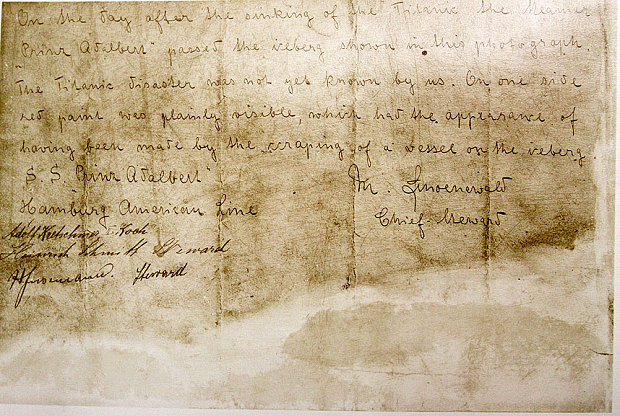 On the day after the sinking of the Titanic the steamer
"Prinz Adalbert" passed the iceberg shown in this photograph.
The Titanic disaster was not yet known by us. On one side
red paint was plainly visible, which had the appearance of
having been made by the scraping of a vessel on the iceberg
S. S. "Prinz Adalbert"
M. Linoenewald
Hamburg American Line
Chief Steward
Adolf I. Koch
Heinrich Schmidt Steward
Steward